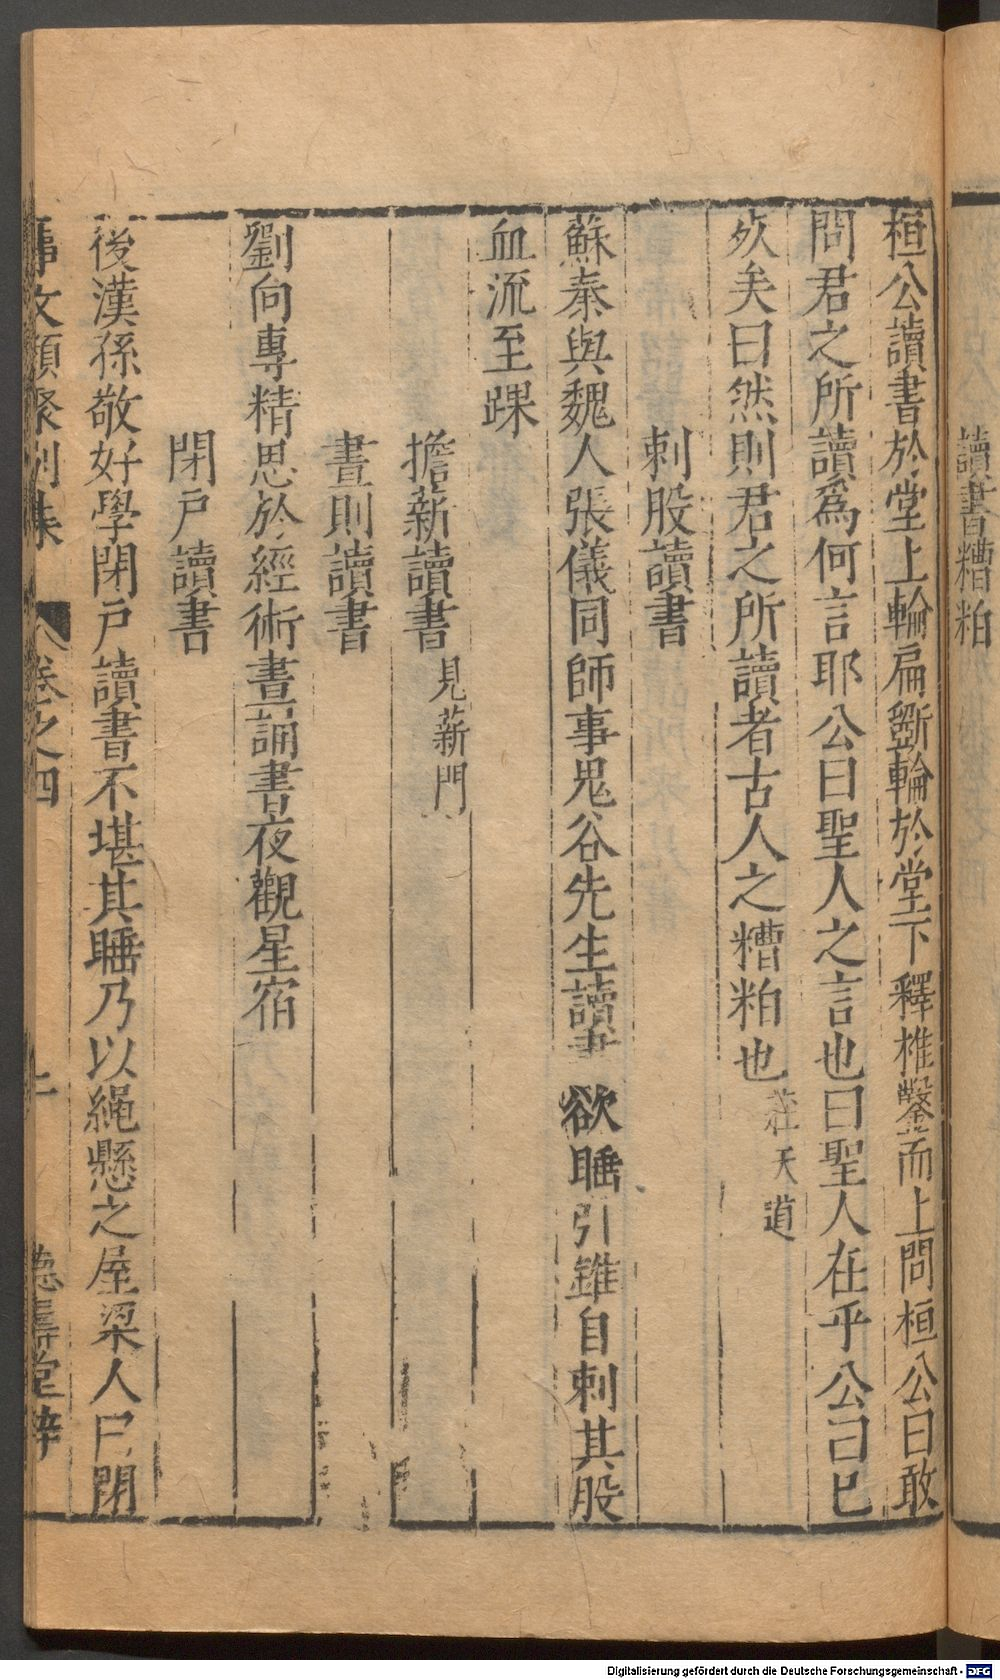 讀書糟粕
桓公讀書於堂上輪扁斵輪於堂下釋椎鑿而上問桓公曰敢
問君之所讀爲何言耶公曰聖人之言也曰聖人在乎公曰已
歿矣曰然則君之所讀者古人之糟粕也莊天道
刺股讀書
蘇秦與魏人張儀同師事鬼谷先生讀書欲睡引錐自刺其股
血流至踝
擔薪讀書見薪門
晝則讀書
劉向專精思於經術晝誦書夜觀星宿
閉戶讀書
後漢孫敬好學閉戶讀書不堪其睡乃以繩懸之屋梁人曰閉
事文類聚別集 卷之四 上 德壽堂梓
Digitalisierung gefördert durch die Deutsche Forschungsgemeinschaft - DFG